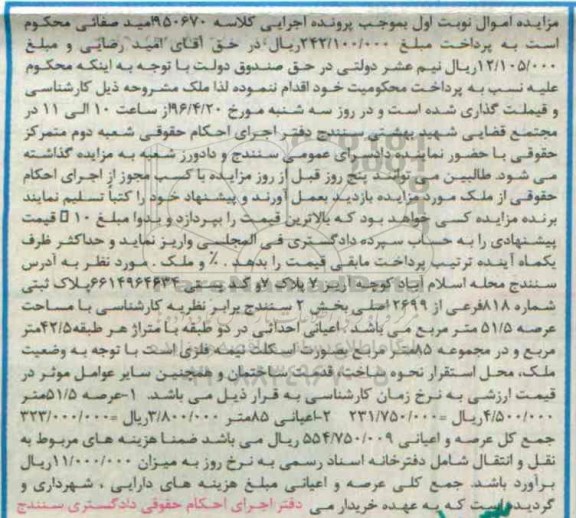 مزایده اموال نوبت اول بموجب پرونده اجرایی کلاسه ۹۵۰۶۷۰امید صفائی محکوم
است به پرداخت مبلغ ۲۴۲/۱۰۰/۰۰۰ریال در حق آقای امید رضایی و مبلغ
۱۲/۱۰۵/۰۰۰ریال نیم عشر دولتی در حق صندوق دولت با توجه به اینکه محکوم
علیه نسب به پرداخت محکومیت خود اقدام ننموده لذا ملک مشروحه ذیل کارشناسی
و قیملت گذاری شده است و در روز سه شنبه مورخ ۹۶/۴/۲۰از ساعت ۱۰ الی ۱۱ در
مجتمع قضایی شهید بهشتی سنندج دفتر اجرای احکام حقوقی شعبه دوم متمرکز
حقوقی با حضور نماینده دادسرای عمومی سنندج و دادورز شعبه به مزایده گذاشته
می شود. طالبین می توانند پنج روز قبل از روز مزایده با کسب مجوز از اجرای احکام
حقوقی از ملک مورد مزایده بازدید بعمل آورند و پیشنهاد خود را کتباً تسلیم نمایند
برنده مزایده کسی خواهد بود که بالاترین قیمت را بپردازد و بدوا مبلغ ۱۰ قیمت
پیشنهادی را به حساب سپرده دادگستری فی المجلس واریز نماید و حداکثر ظرف
یکماه آینده ترتیب پرداخت مابقی قیمت را بدهد . ٪ و ملک . مورد نظر به آدرس
سنندج محله اسلام آباد کوچه پلاک ۷و کد پستی ۶۶۱۴۹۶۴۶۳۴پلاک ثبتی
شماره ۸۱۸فرعی از ۲۶۹۹اصلی بخش ۲ سنندج برابر نظریه کارشناسی با مساحت
عرصه ۵۱/۵ متر مربع می باشد . اعیانی احداثی در دو طبقه با متراژ هر طبقه۴۲/۵متر
مربع و در مجموعه ۸۵متر مربع بصورت اسکلت نیمه فلزی است با توجه به وضعیت
ملک، محل استقرار نحوه ساخت، قدمت ساختمان و همچنین سایر عوامل موثر در
قیمت ارزشی به نرخ زمان کارشناسی به قرار ذیل می باشد. ۱-عرصه ۵۱/۵متر
۴/۵۰۰/۰۰۰ریال =۲۳۱/۷۵۰/۰۰۰ ۲-اعیانی ۸۵متر ۳/۸۰۰/۰۰۰ریال =۳۲۳/۰۰۰/۰۰۰
جمع کل عرصه و اعیانی ۵۵۴/۷۵۰/۰۰۹ ریال می باشد ضمنا هزینه های مربوط به
نقل و انتقال شامل دفترخانه اسناد رسمی به نرخ روز به میزان ۱۱/۰۰۰/۰۰۰ریال
برآورد باشد. جمع کلی عرصه و اعیانی مبلغ هزینه های دارایی ، شهرداری و
گردیده است که به عهده خریدار می دفتر اجرای احکام حقوقی دادگستری سنندج